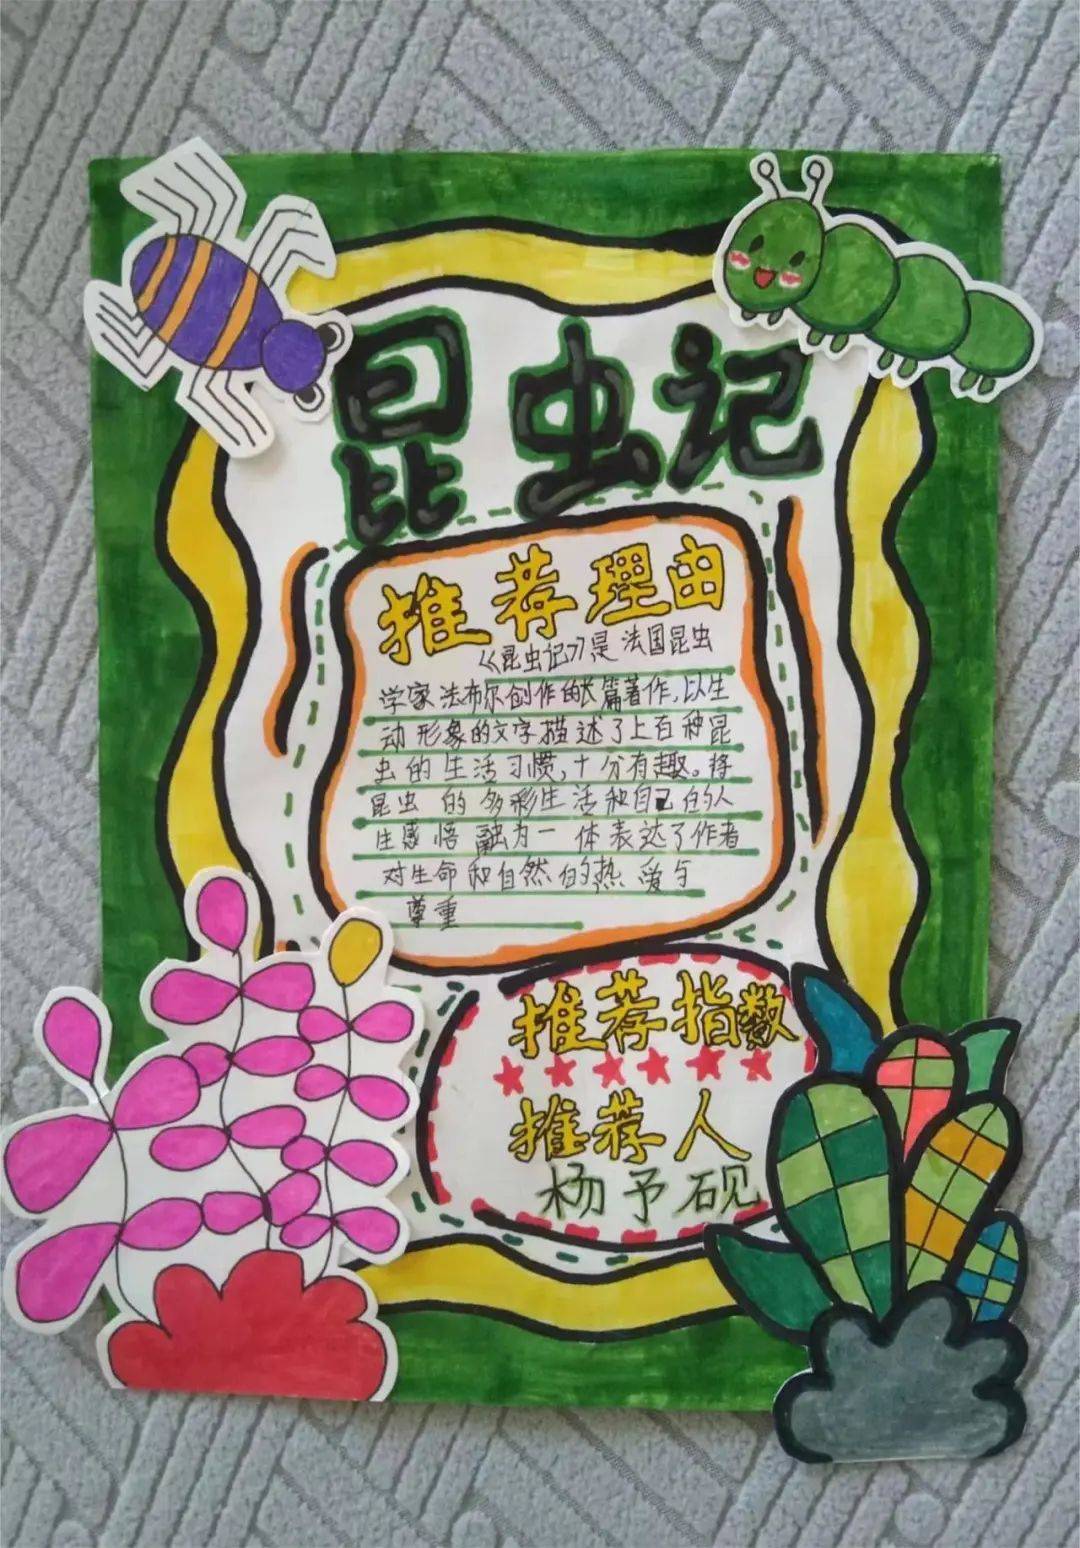 昆虫记
推荐理由
《昆虫记》是法国昆虫
学家法布尔创作的长篇著作,以生
动形象的文字描述了上百种昆
虫的生活习惯,十分有趣。将
昆虫的多彩生活和自己的人
生感悟融为一体表达了作者
对生命和自然的热爱与
尊重
推荐指数
★★★★★★
推荐人
杨予砚